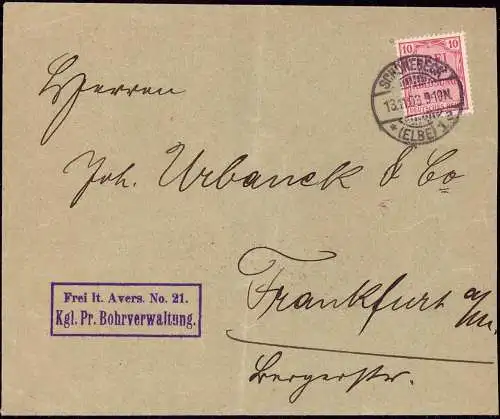 10 10
SCHÖNEBECK
13.11.03. 9-10N.
* (ELBE) 1.
Herren
Joh. Urbanck & Co
Frankfurt a/M.
Bergerstr.
Frei lt. Avers. No. 21.
Kgl. Pr. Bohrverwaltung.